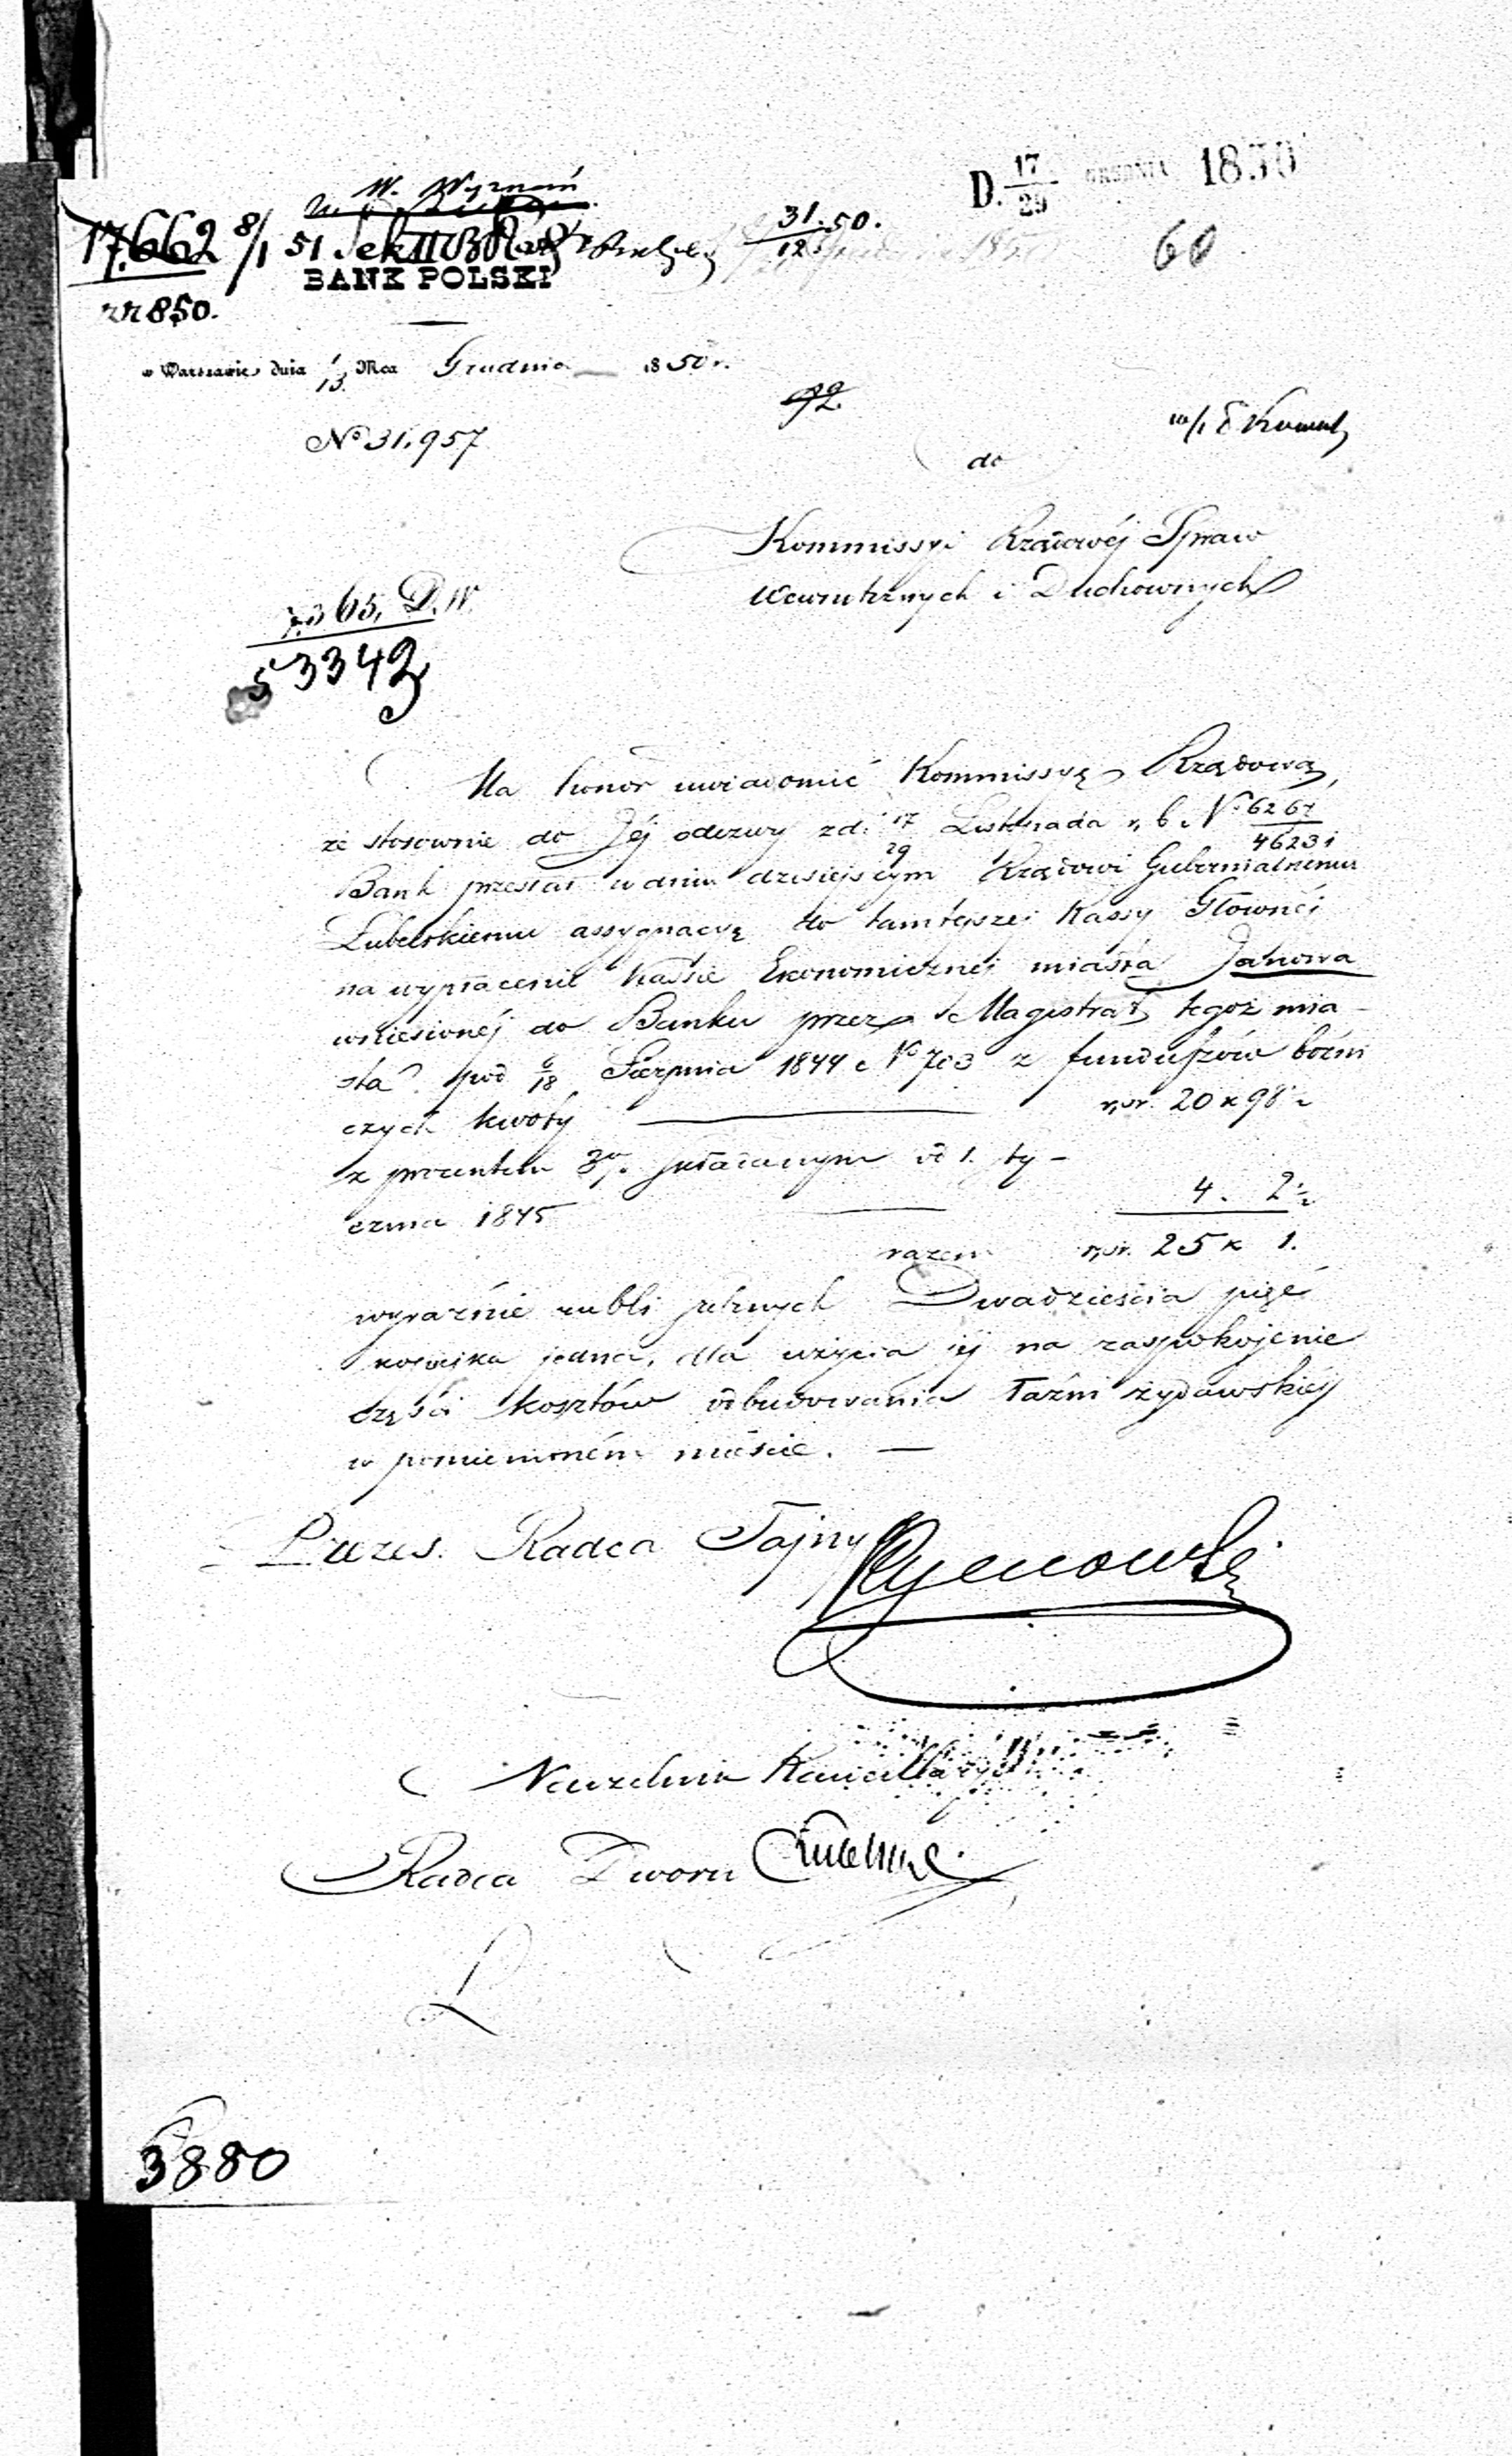 W. Wyznań
D. 17/29 1850
17.662 8/1 51 Sek II
31/12 50.
60
BANK POLSKI
850.
w Warszawie dnia 1/13 Mca Grudnia 1850 r.
92.
No 31,957
do
Kommissyi Rządowéj Spraw
Wewnętrznych i Duchownych
65, D.W.
53342
Ma honor uwiadomić Kommissyę Rządową,
że stosownie do Jéj odezwy z d. 17/29 Listopada r. b. No 6267/46231
Bank przesłał w dniu dzisiejszym Rządowi Gubernialnemu
Lubelskiemu assygnacyę do tamtejszej Kassy Głównéj
na wypłacenie Kassie Ekonomicznéj miasta Janowa
wniesionéj do Banku przez Magistrat tegoż mia-
sta pod 6/18 Sierpnia 1844 No 703 z funduszów bóżni
czych kwoty rsr. 20 k 98½
z procentem 3% składanym od 1. sty-
cznia 1845 4. 2½
razem rsr. 25 k 1.
wyraźnie rubli srebrnych Dwadzieścia pięć
kopiejka jedna, dla użycia jéj na zaspokojenie
części kosztów odbudowania łaźni żydowskiéj
w pomienioném mieście.
Prezes. Radca Tajny
Naczelnik Kancellaryi
Radca Dworu
3880